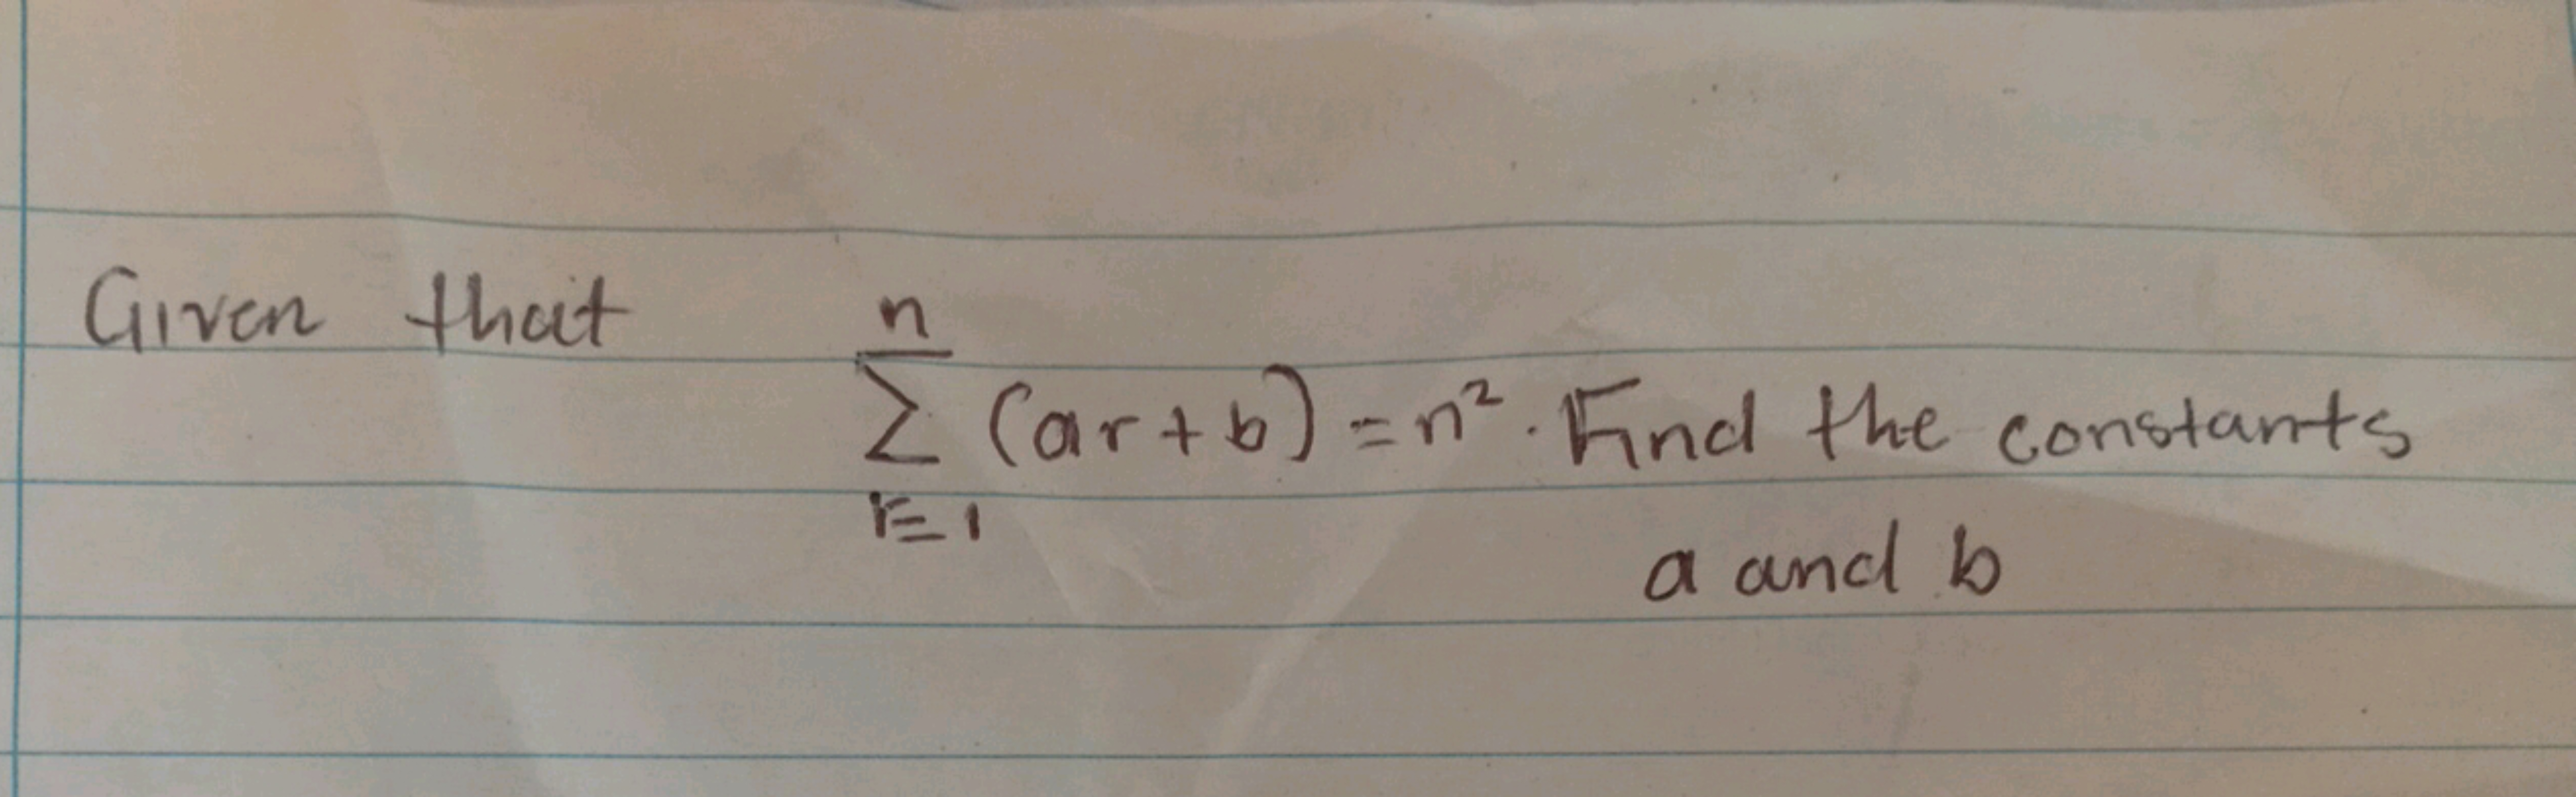 Given that
n
∑ (ar + b) = n². Find the constants
r=1
a and b